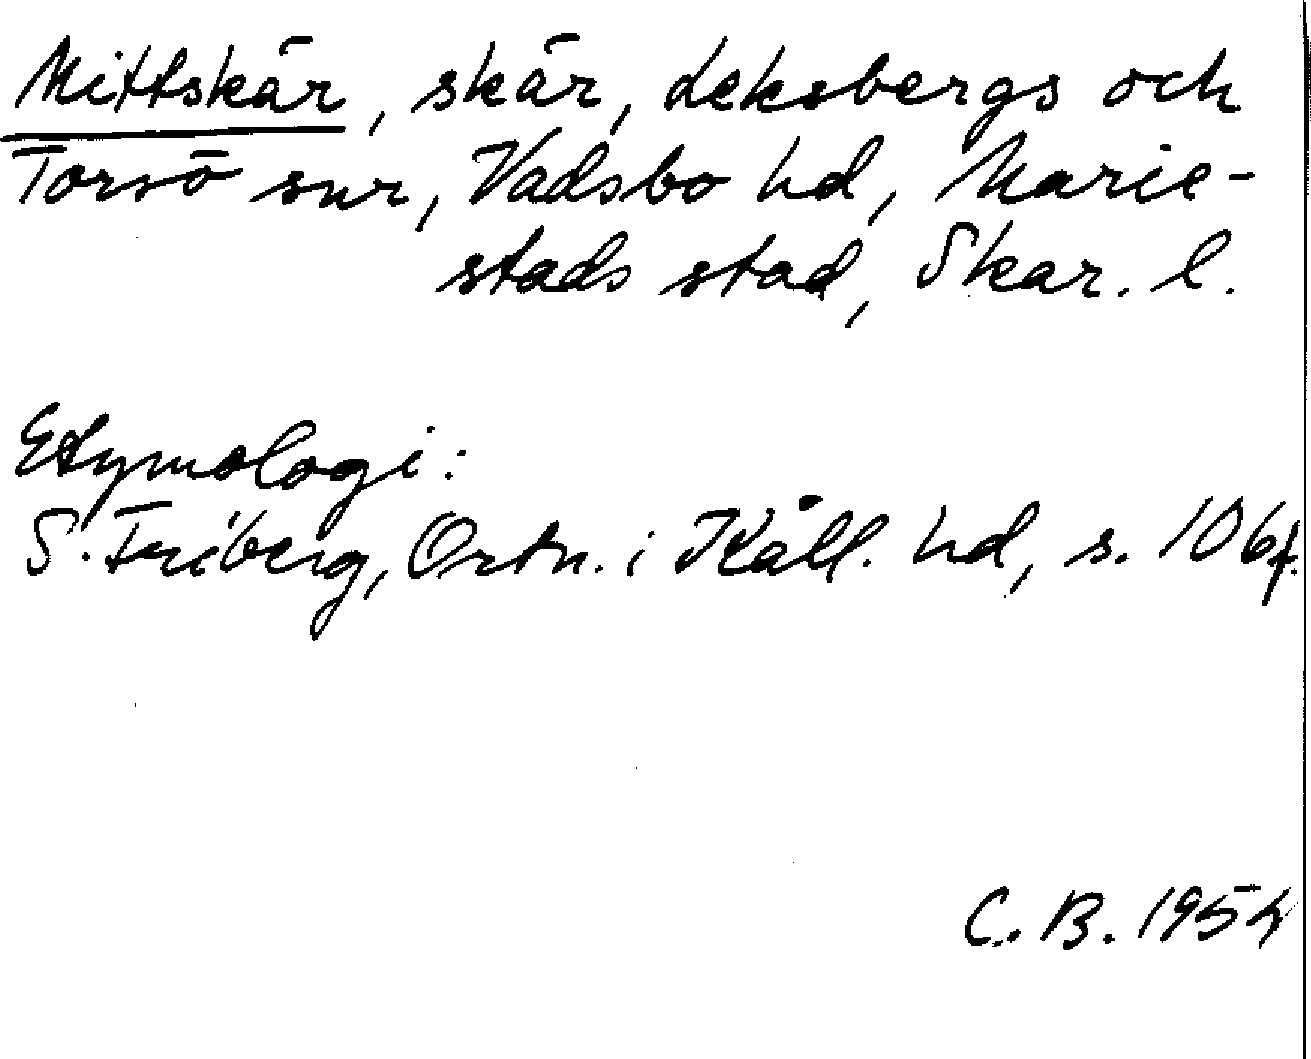 Mittskär, skär, Leksbergs och
Torsö snr, Vadsbo hd, Marie-
stads stad, Skar. l.
Etymologi:
S. Friberg, Ortn. i Kåll. hd, s. 106f.
C. B. 1954